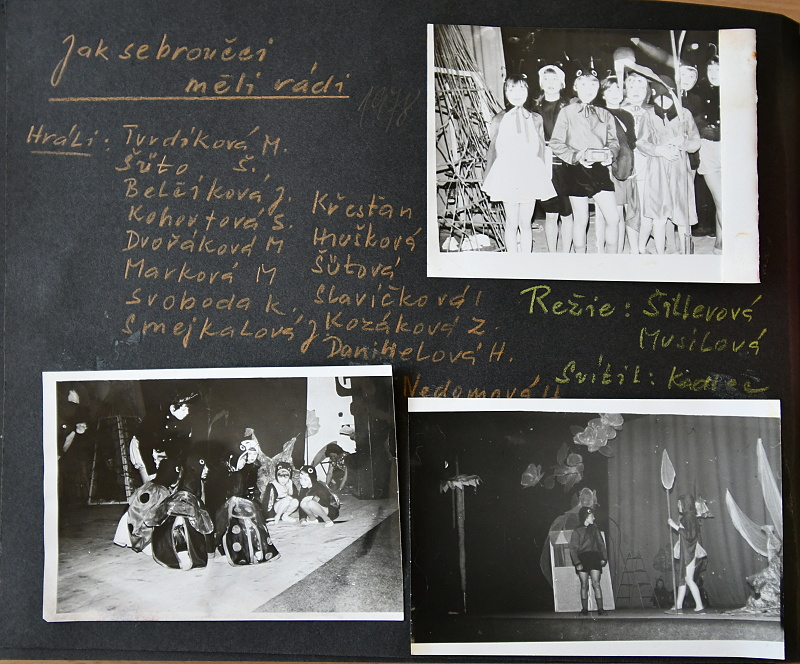 Jak se broučci
měli rádi
1978
Hráli: Tvrdíková M.
Šůto Š.
Belčíková J.
Kohoutová S.
Dvořáková M
Marková M
Svoboda K.
Smejkalová J
Křesťan
Hrušková
Šůtová
Slavíčková I
Kozáková Z.
Danihelová H.
Nedomová H
Režie: Šillerová
Musilová
Svítil: Kadlec